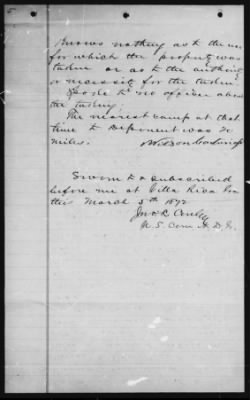 Knows nothing as to the use
for which the property was
taken or as to the authority
or necessity for the taking
Spoke to no officer about
the taking.
The nearest camp at that
time to Deponent was 20
miles.
Sworn to & subscribed
before me at Villa Rica Ga
this March 5th 1872
Jno R. Conley
U. S. Com N. D. Ga